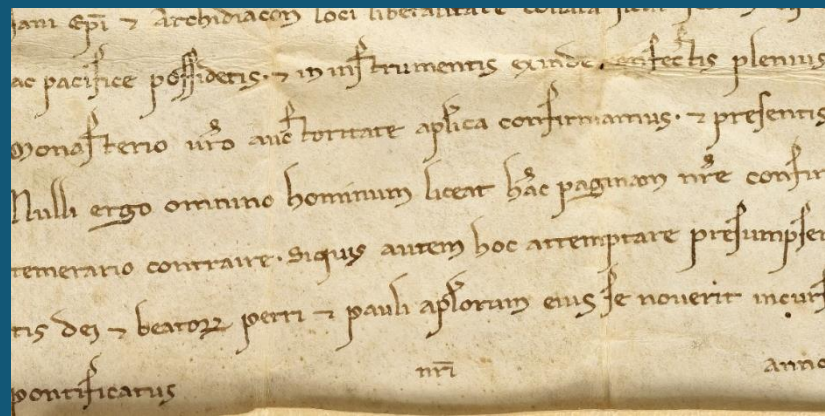 iani Ep̄i ⁊ Archidiacon loci liberalitate
ac pacifice possidetis. ⁊ in instrumentis exinde confectis plenius
Monasterio ur̄o auctoritate apl̄ica confirmamus. ⁊ presentis
Nulli ergo omnino hominum liceat hāc paginam nr̄e confir
temerario contraire. Siquis autem hoc attemptare presumpser
tis dei ⁊ beatoꝝ petri ⁊ pauli apl̄orum eius se noverit incurs
pontificatus nr̄i anno